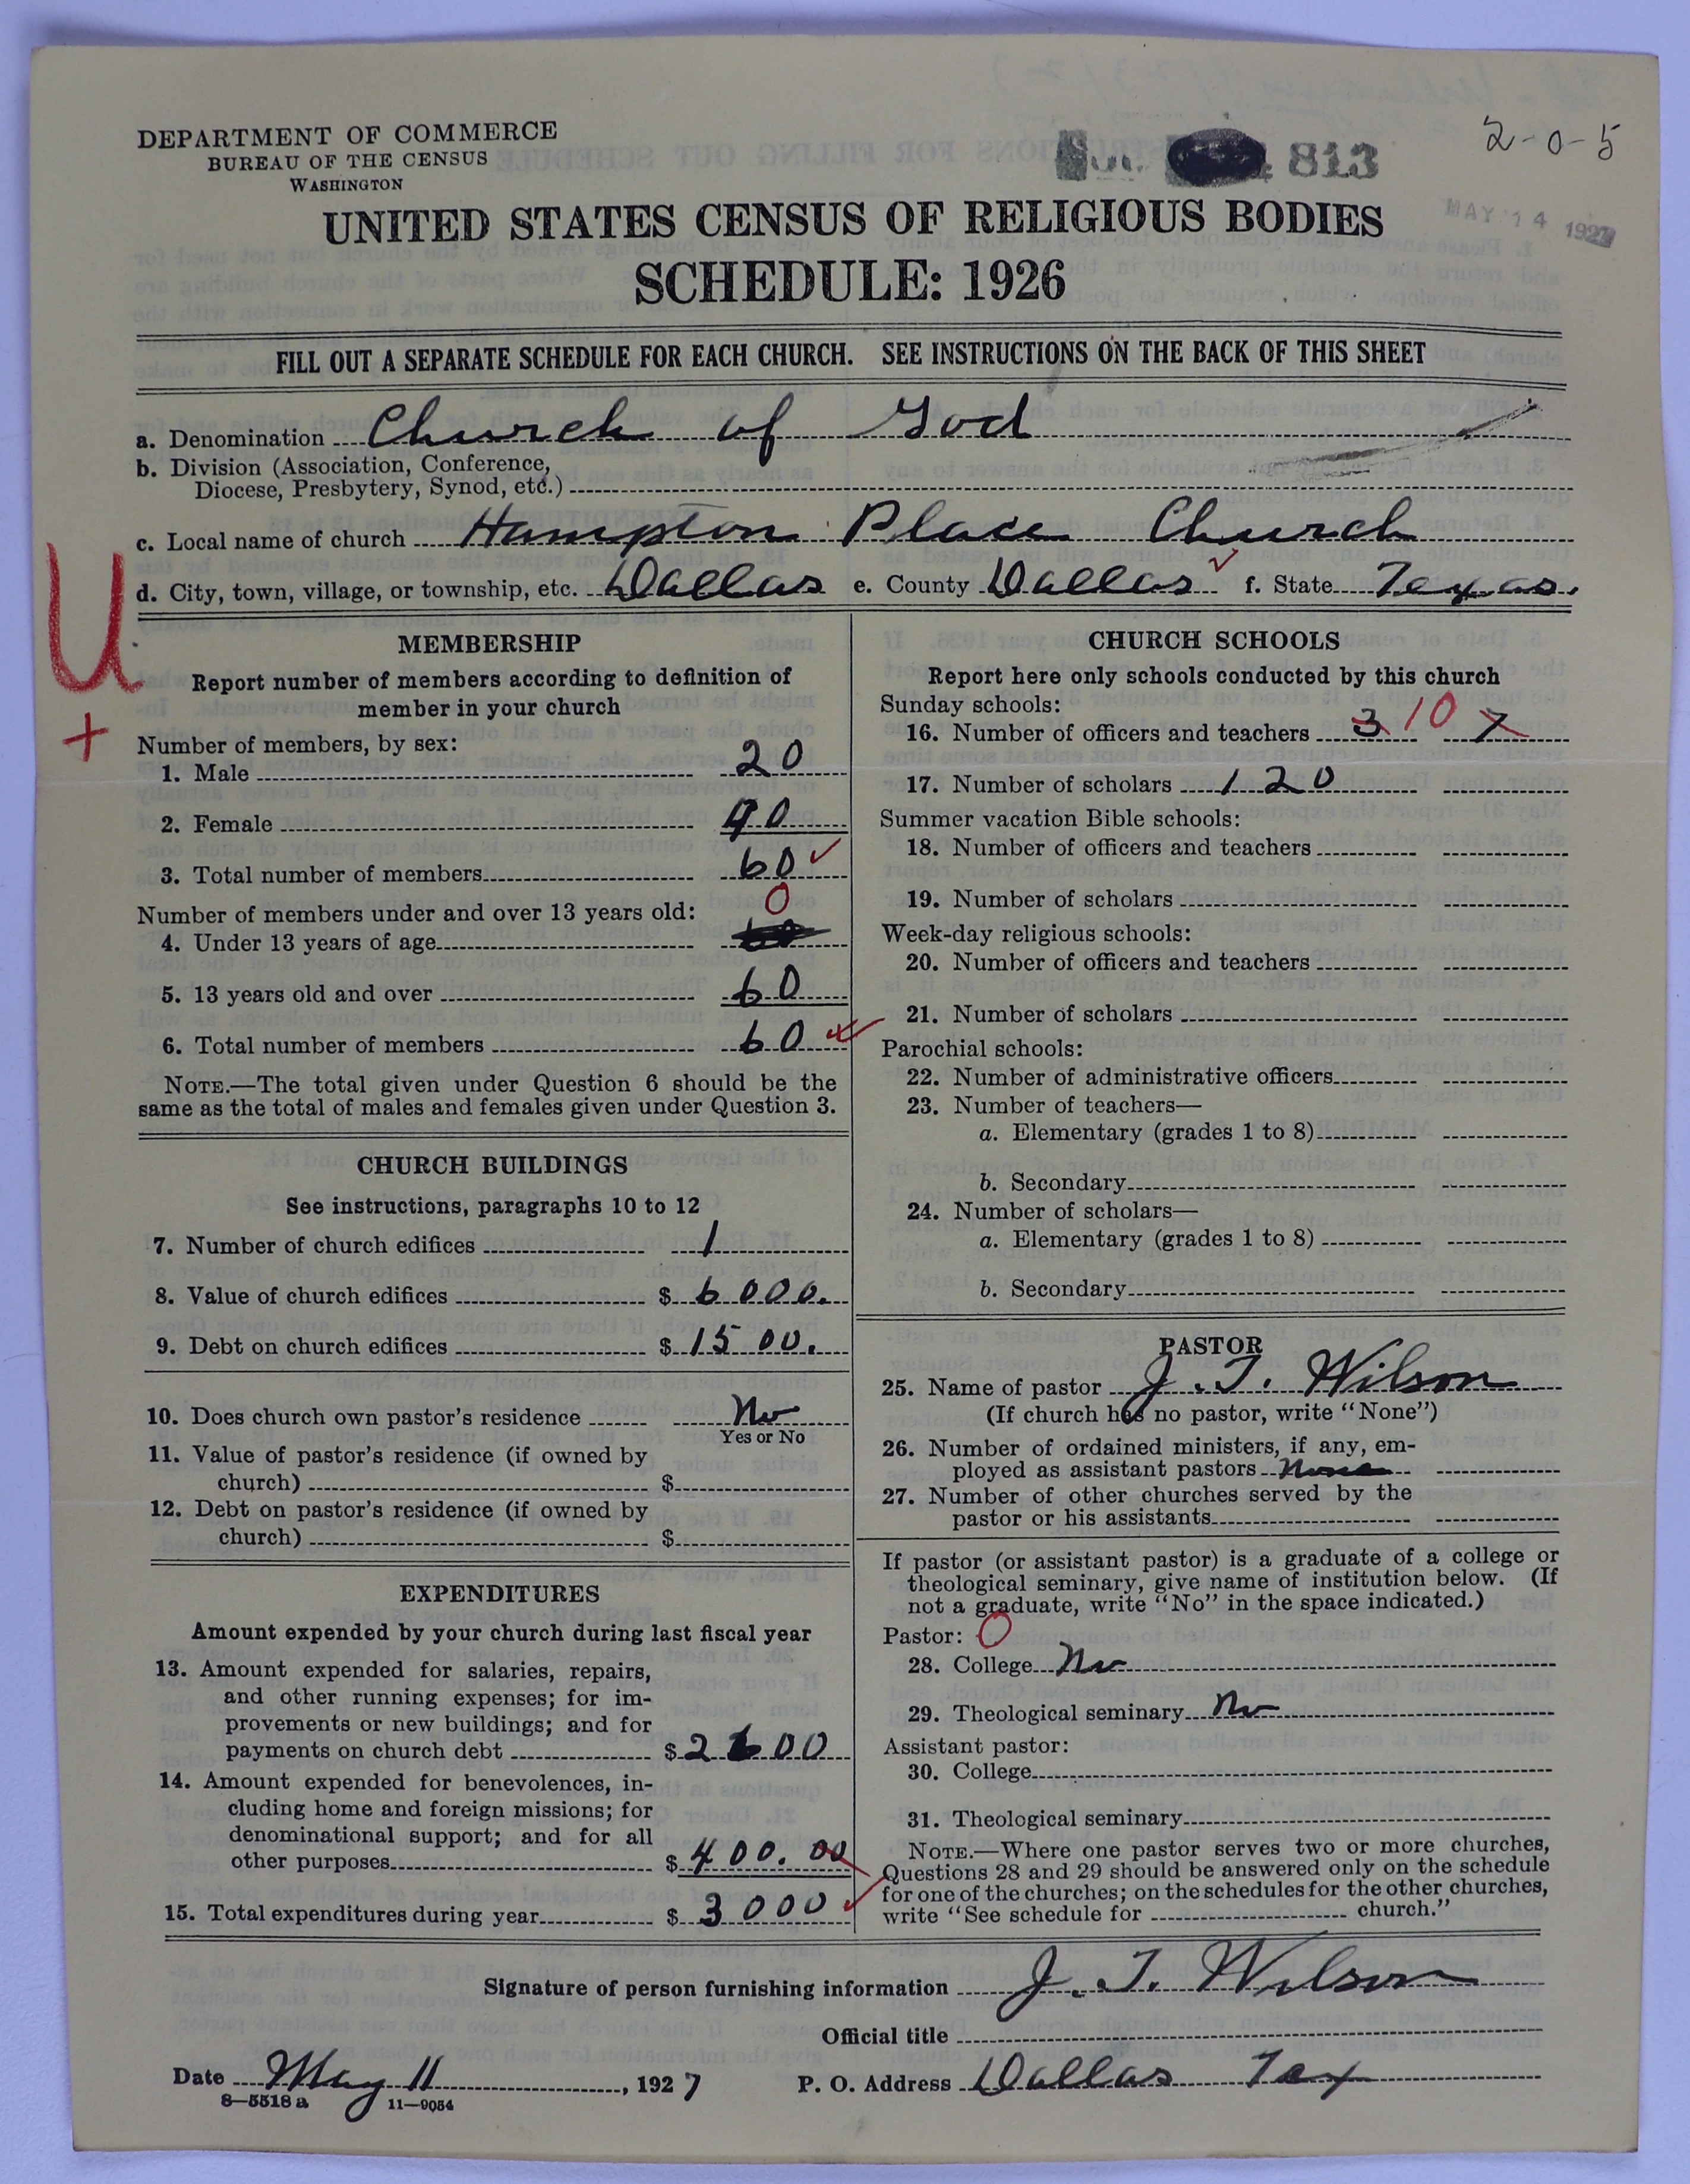 DEPARTMENT OF COMMERCE
BUREAU OF THE CENSUS
WASHINGTON
813
2-0-5
MAY 14 1927
UNITED STATES CENSUS OF RELIGIOUS BODIES
SCHEDULE: 1926
FILL OUT A SEPARATE SCHEDULE FOR EACH CHURCH. SEE INSTRUCTIONS ON THE BACK OF THIS SHEET
a. Denomination Church of God
b. Division (Association, Conference,
Diocese, Presbytery, Synod, etc.)
c. Local name of church Hampton Place Church
d. City, town, village, or township, etc. Dallas e. County Dallas f. State Texas.
U
+
MEMBERSHIP
Report number of members according to definition of
member in your church
Number of members, by sex:
1. Male 20
2. Female 40
3. Total number of members 60
Number of members under and over 13 years old: 0
4. Under 13 years of age
5. 13 years old and over 60
6. Total number of members 60
NOTE.—The total given under Question 6 should be the
same as the total of males and females given under Question 3.
CHURCH BUILDINGS
See instructions, paragraphs 10 to 12
7. Number of church edifices 1
8. Value of church edifices $ 6000.
9. Debt on church edifices $ 1500.
10. Does church own pastor's residence No
Yes or No
11. Value of pastor's residence (if owned by
church) $
12. Debt on pastor's residence (if owned by
church) $
EXPENDITURES
Amount expended by your church during last fiscal year
13. Amount expended for salaries, repairs,
and other running expenses; for im-
provements or new buildings; and for
payments on church debt $ 2600
14. Amount expended for benevolences, in-
cluding home and foreign missions; for
denominational support; and for all
other purposes $ 400.00
15. Total expenditures during year $ 3000
CHURCH SCHOOLS
Report here only schools conducted by this church
Sunday schools:
16. Number of officers and teachers 3 10 7
17. Number of scholars 120
Summer vacation Bible schools:
18. Number of officers and teachers
19. Number of scholars
Week-day religious schools:
20. Number of officers and teachers
21. Number of scholars
Parochial schools:
22. Number of administrative officers
23. Number of teachers—
a. Elementary (grades 1 to 8)
b. Secondary
24. Number of scholars—
a. Elementary (grades 1 to 8)
b. Secondary
PASTOR
25. Name of pastor J. T. Wilson
(If church has no pastor, write "None")
26. Number of ordained ministers, if any, em-
ployed as assistant pastors None
27. Number of other churches served by the
pastor or his assistants
If pastor (or assistant pastor) is a graduate of a college or
theological seminary, give name of institution below. (If
not a graduate, write "No" in the space indicated.)
Pastor: 0
28. College No
29. Theological seminary No
Assistant pastor:
30. College
31. Theological seminary
NOTE.—Where one pastor serves two or more churches,
Questions 28 and 29 should be answered only on the schedule
for one of the churches; on the schedules for the other churches,
write "See schedule for church."
Signature of person furnishing information J. T. Wilson
Official title
Date May 11, 1927 P. O. Address Dallas Tex
8—5518 a 11—9054